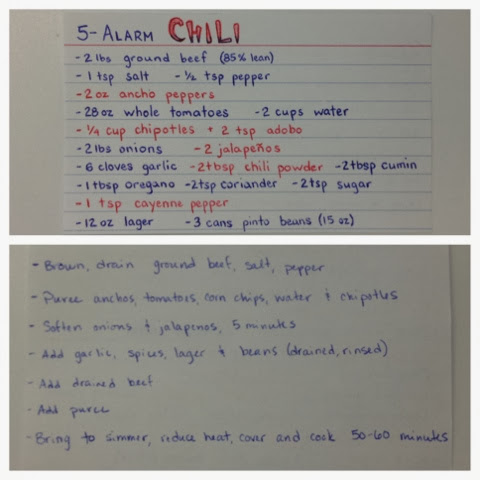 5-ALARM CHILI
-2 lbs ground beef (85% lean)
-1 tsp salt -½ tsp pepper
-2 oz ancho peppers
-28oz whole tomatoes -2 cups water
-¼ cup chipotles + 2 tsp adobo
-2lbs onions -2 jalapeños
-6 cloves garlic -2tbsp chili powder -2tbsp cumin
-1tbsp oregano -2tsp coriander -2tsp sugar
-1 tsp cayenne pepper
-12 oz lager -3 cans pinto beans (15 oz)
-Brown, drain ground beef, salt, pepper
-Puree anchos, tomatoes, corn chips, water & chipotles
-Soften onions & jalapenos, 5 minutes
-Add garlic, spices, lager & beans (drained, rinsed)
-Add drained beef
-Add puree
-Bring to simmer, reduce heat, cover and cook 50-60 minutes